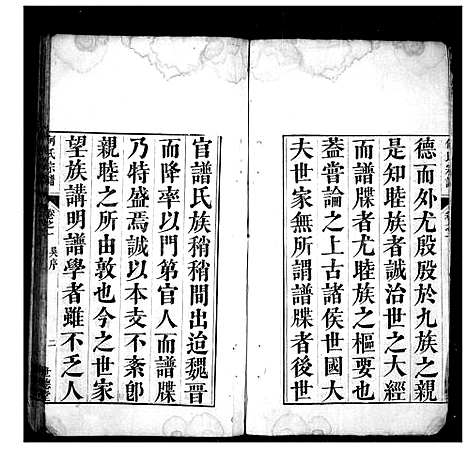 德而外尤殷殷於九族之親
是知睦族者誠治世之大經
而譜牒者尤睦族之樞要也
蓋嘗論之上古諸侯世國大
夫世家無所謂譜牒者後世
官譜氏族稍稍間出迨魏晉
而降率以門第官人而譜牒
乃特盛焉誠以本支不紊卽
親睦之所由敦也今之世家
望族講明譜學者雖不乏人
何氏宗譜
卷之一
吳序
二
世德堂